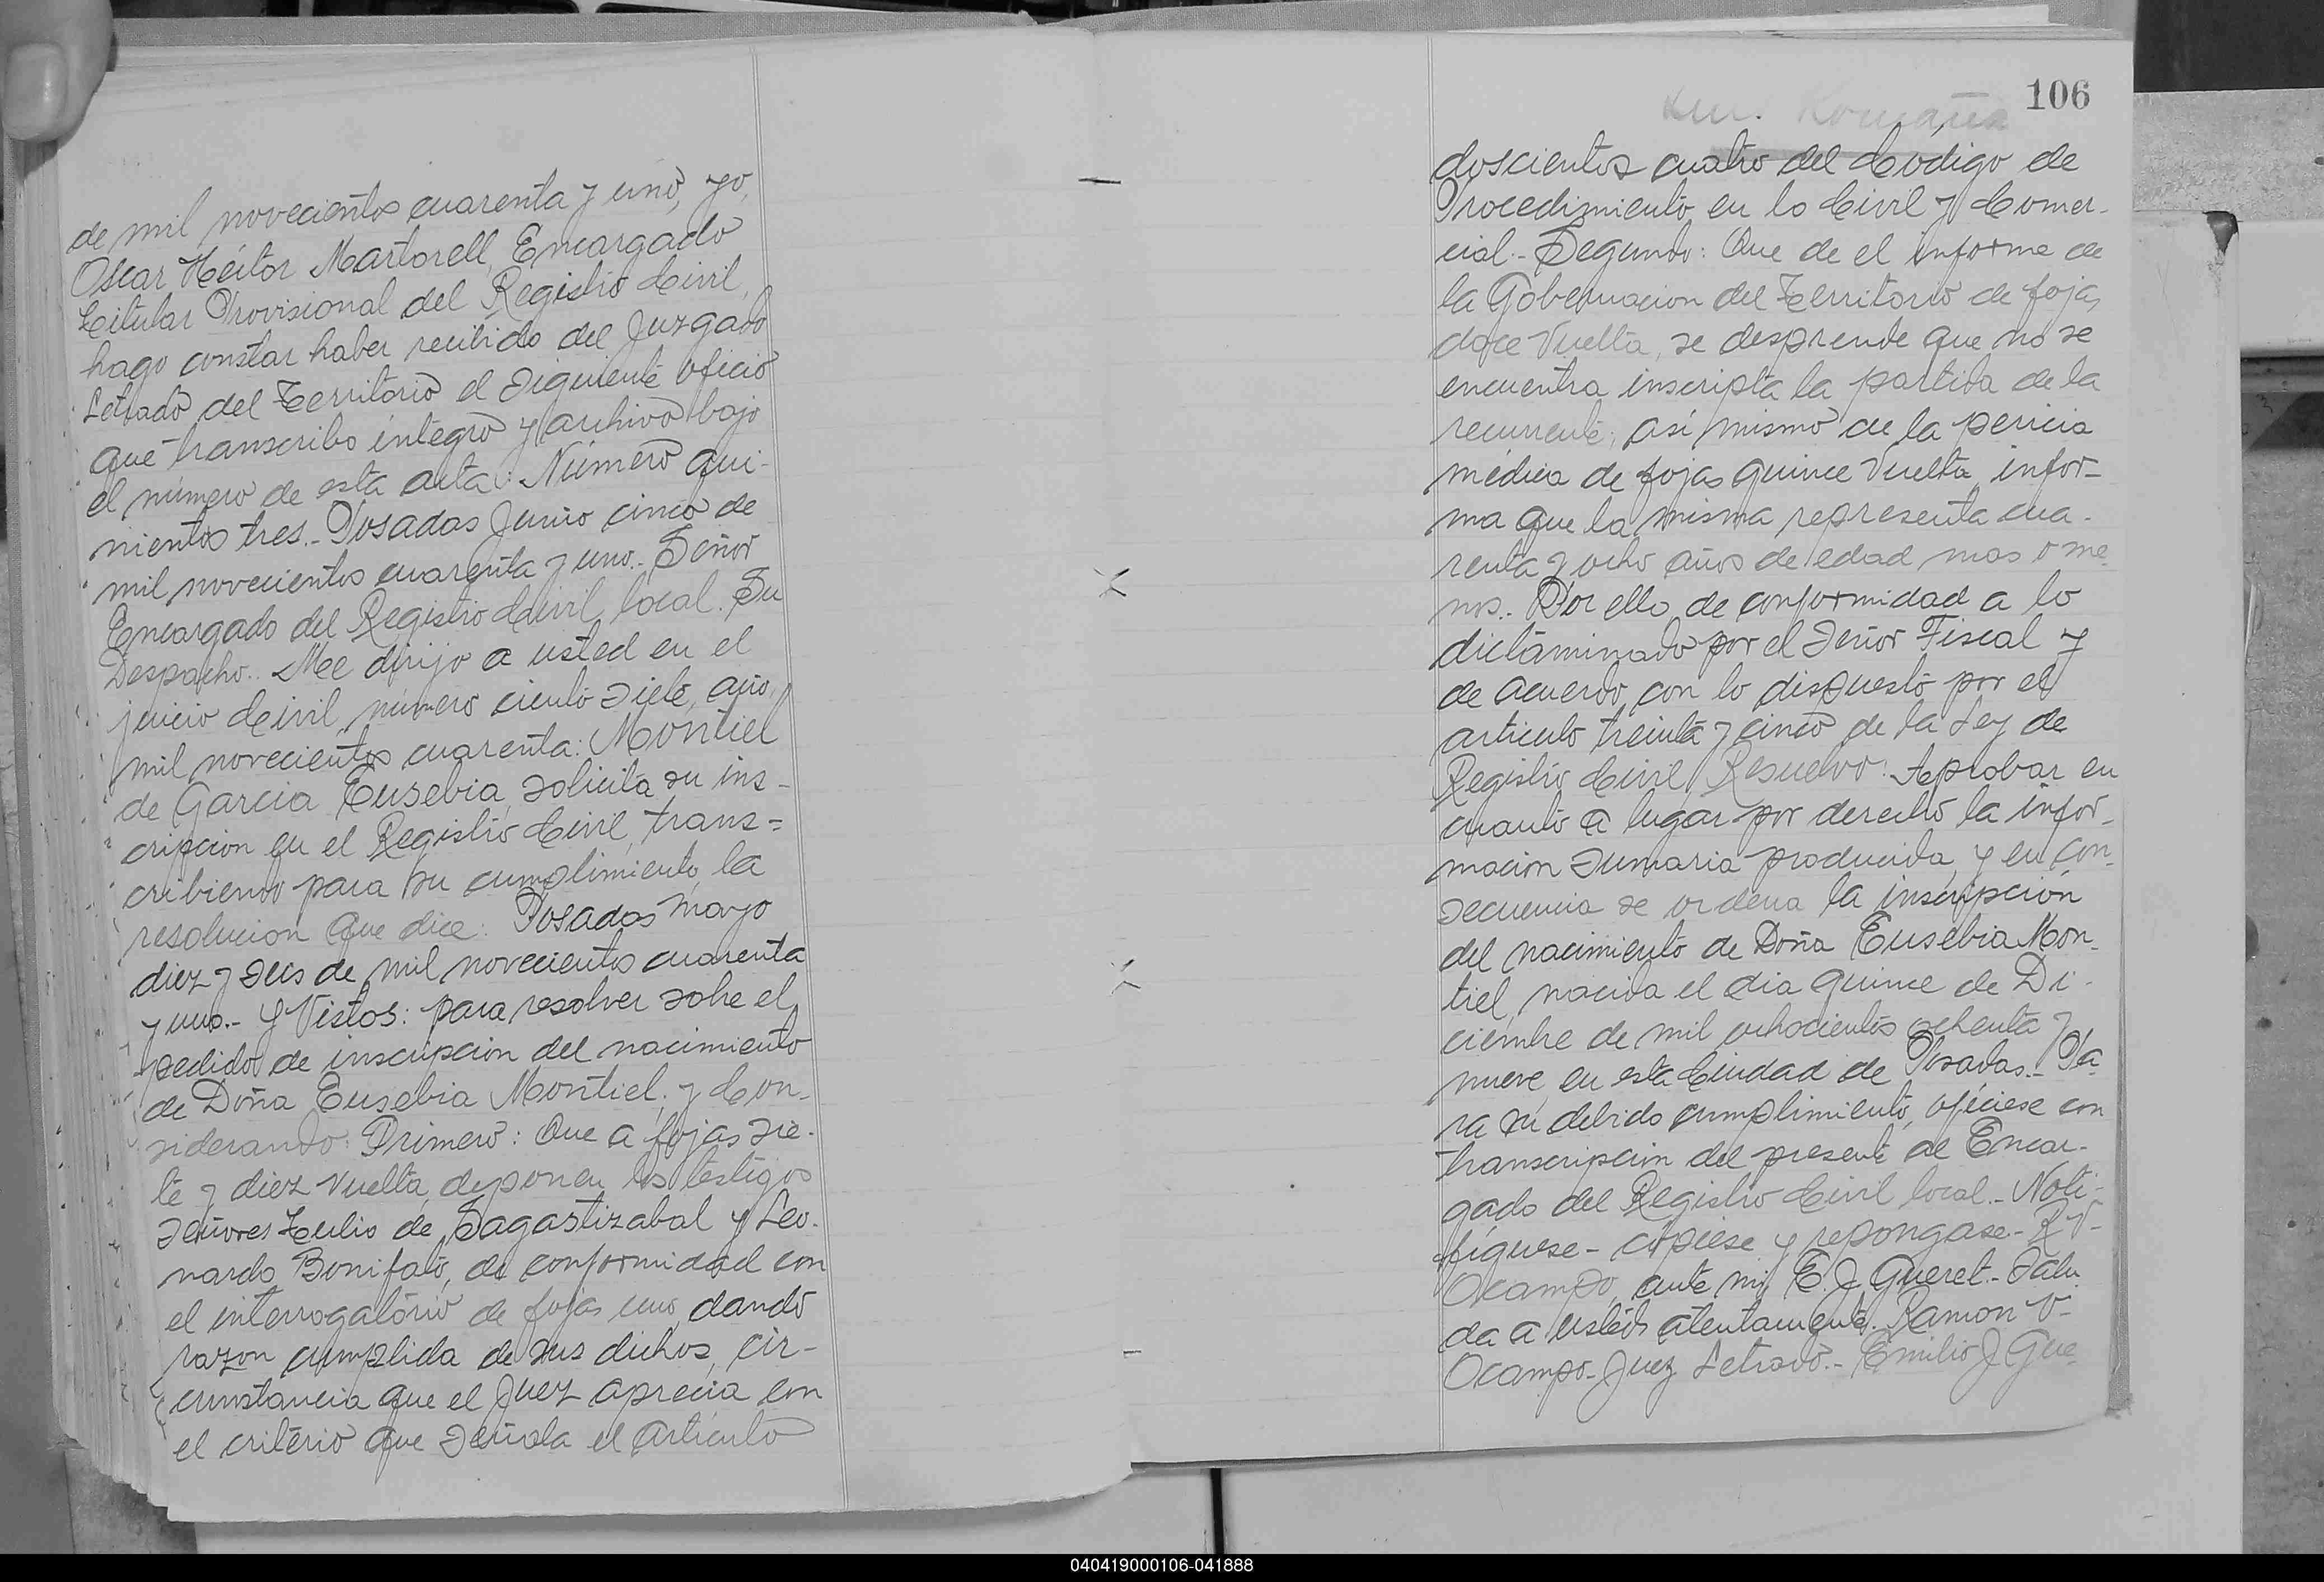 de mil novecientos cuarenta y uno, yo,
Oscar Héctor Martorell, Encargado
Titular Provisional del Registro Civil,
hago constar haber recibido del Juzgado
Letrado del Territorio el siguiente oficio
que transcribo íntegro y archivo bajo
el número de esta acta: Número qui-
nientos tres.- Posadas Junio cinco de
mil novecientos cuarenta y uno.- Señor
Encargado del Registro Civil, local. Su
Despacho.. Me dirijo a usted en el
juicio Civil, número ciento siete, año,
mil novecientos cuarenta: Montiel
de Garcia Eusebia, solicita su ins-
cripcion en el Registro Civil, trans=
cribiendo para su cumplimiento, la
resolucion que dice: Posadas mayo
diez y seis de mil novecientos cuarenta
y uno.- Y Vistos: para resolver sobre el
pedido de inscripcion del nacimiento
de Doña Eusebia Montiel; y Con-
siderando: Primero: Que a fojas sie-
te y diez vuelta, deponen los testigos
señores Tulio de Sagastizabal y Leo-
nardo Bonifato, de conformidad con
el interrogatorio de fojas uno, dando
razon cumplida de sus dichos, cir-
cunstancia que el Juez aprecia con
el critério que señala el articulo
106
doscientos cuatro del Código de
Procedimiento, en lo Civil y Comer-
cial.- Segundo: Que de el informe de
la Gobernacion del Territorio de fojas
doce vuelta, se desprende que no se
encuentra inscripta la partida de la
recurrente; así mismo de la pericia
médica de fojas quince vuelta, infor-
ma que la misma representa cua-
renta y ocho años de edad mas o me-
nos.- Por ello, de conformidad a lo
dictaminado por el Señor Fiscal y
de acuerdo, con lo dispuesto por el
articulo treinta y cinco de la Ley de
Registro Civil, Resuelvo: Aprobar en
cuanto a lugar por derecho la infor-
macion sumaria producida, y en con-
secuencia se ordena la inscripción
del nacimiento de Doña Eusebia Mon-
tiel, nacida el dia quince de Di-
ciembre de mil ochocientos ochenta y
nueve, en esta Ciudad de Posadas.- Pa-
ra su debido cumplimiento, ofíciese con
transcripcion del presente al Encar-
gado del Registro Civil local.- Noti-
fíquese- cópiese y repongase- R V-
Ocampo, ante mi, E. J. Gueret.- Salu
da a usted atentamente. Ramon V-
Ocampo- Juez Letrado.- Emilio J Gue-
040419000106-041888